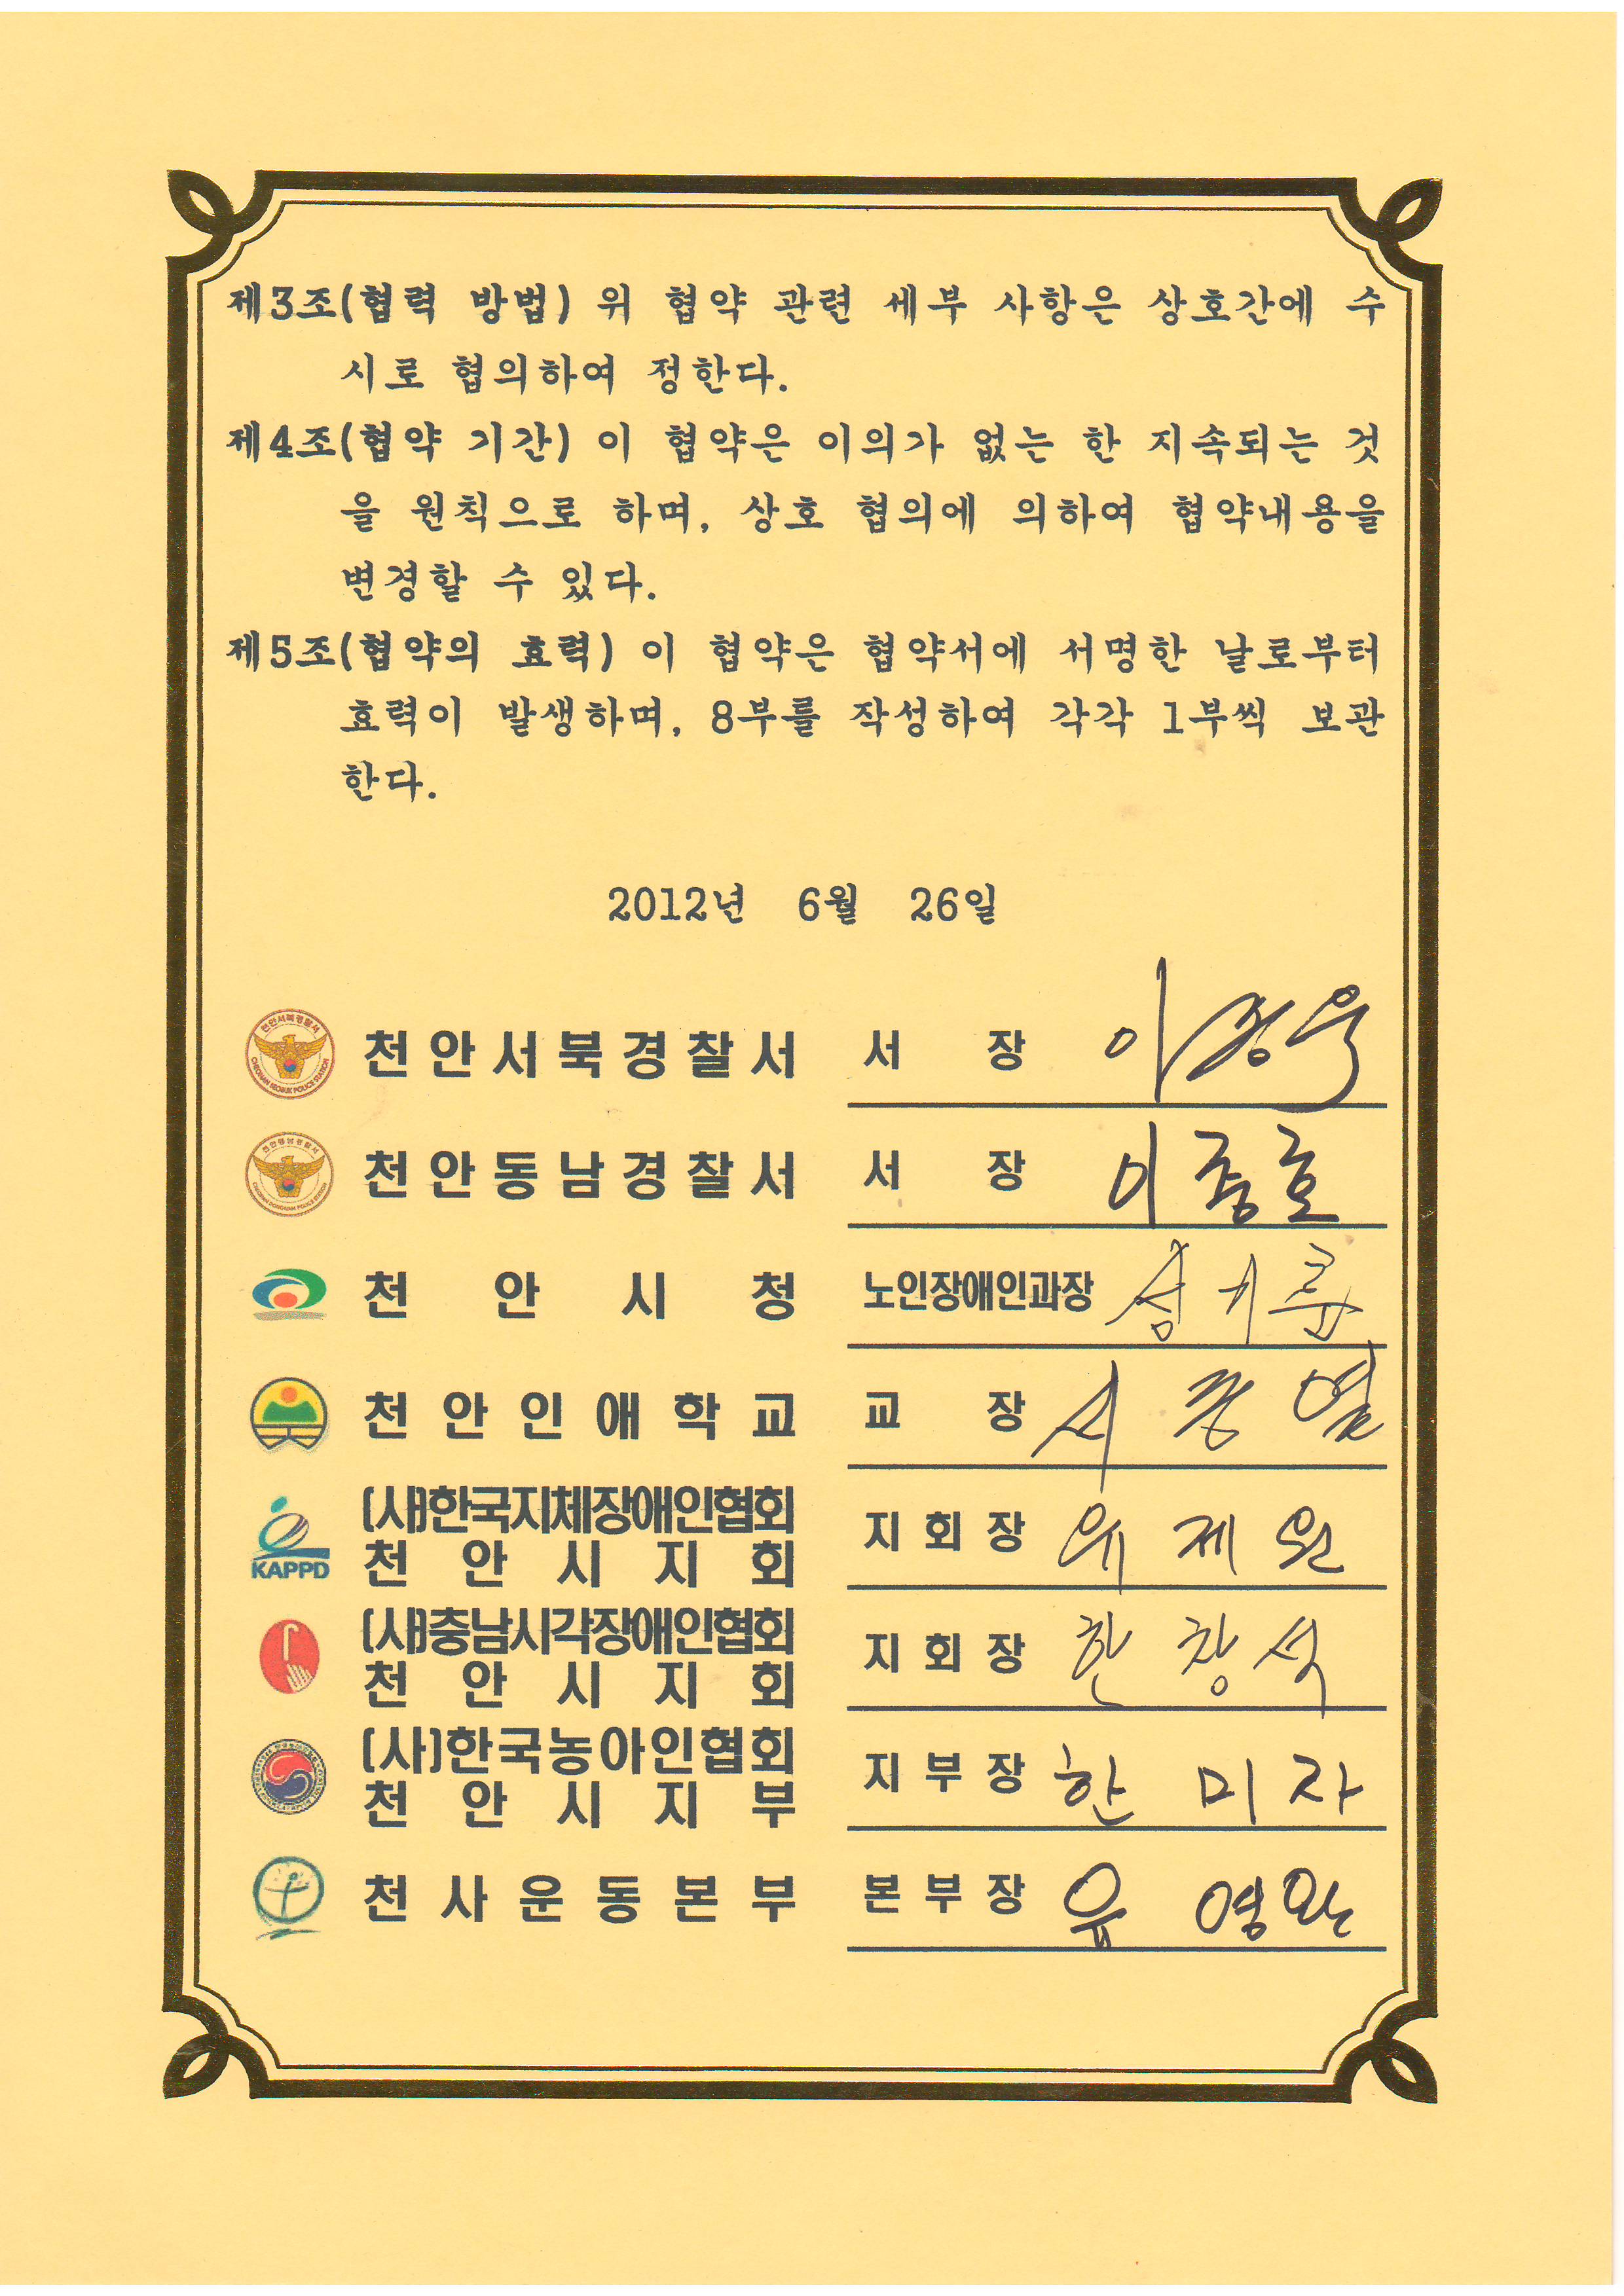 제3조(협력 방법) 위 협약 관련 세부 사항은 상호간에 수
시로 협의하여 정한다.
제4조(협약 기간) 이 협약은 이의가 없는 한 지속되는 것
을 원칙으로 하며, 상호 협의에 의하여 협약내용을
변경할 수 있다.
제5조(협약의 효력) 이 협약은 협약서에 서명한 날로부터
효력이 발생하며, 8부를 작성하여 각각 1부씩 보관
한다.
2012년 6월 26일
천안서북경찰서
CHEONAN SEOBUK POLICE STATION
천안서북경찰서 서 장
천안동남경찰서
CHEONAN DONGNAM POLICE STATION
천안동남경찰서 서 장 이중호
천 안 시 청 노인장애인과장
천안인애학교 교 장
(사)한국지체장애인협회
천 안 시 지 회 지 회 장 유제원
KAPPD
(사)충남시각장애인협회
천 안 시 지 회 지 회 장 한창석
(사)한국농아인협회
천 안 시 지 부 지 부 장 한미자
천사운동본부 본 부 장 유영완